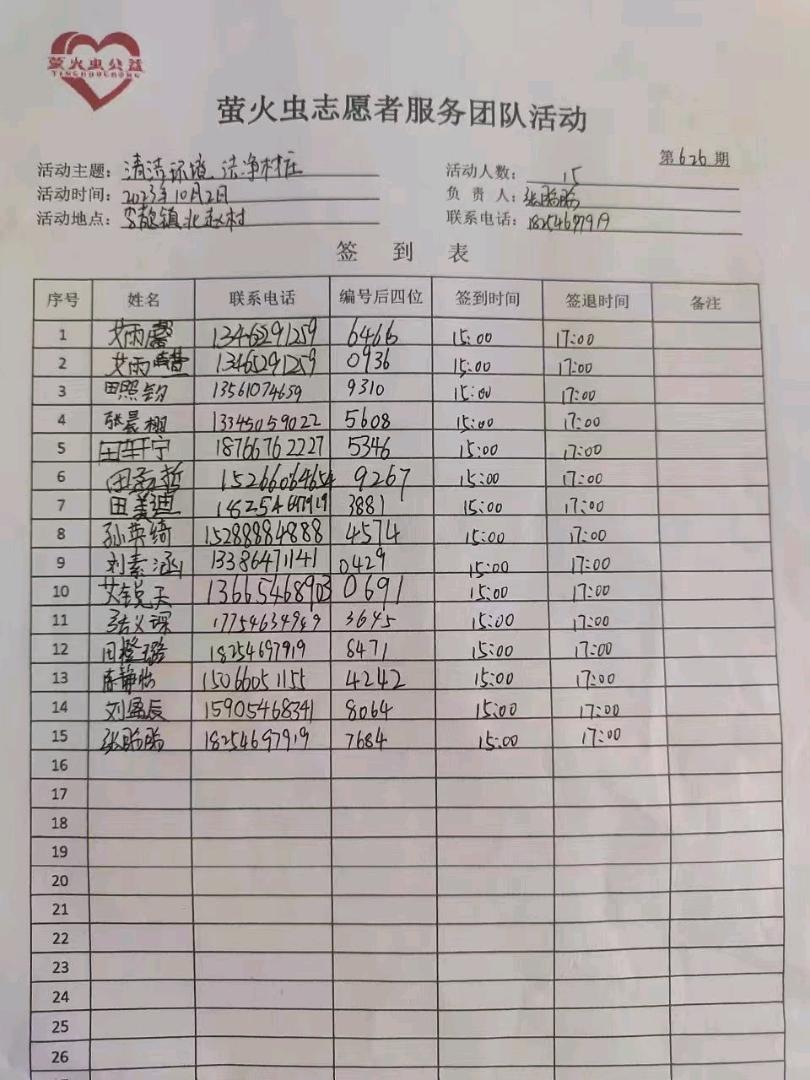 萤火虫公益
YINGHUOCHONG
萤火虫志愿者服务团队活动
第626期
活动主题：清洁环境 洁净村庄 活动人数：15
活动时间：2023年10月2日 负责人：张盼盼
活动地点：李鹊镇北赵村 联系电话：18254697919
签到表
序号 姓名 联系电话 编号后四位 签到时间 签退时间 备注
1 艾雨馨 13465291259 6466 15:00 17:00
2 艾雨 13465291259 0936 15:00 17:00
3 田照钧 13561074659 9310 15:00 17:00
4 张晨栩 13345059022 5608 15:00 17:00
5 田轩宁 18766762227 5346 15:00 17:00
6 田孟哲 15266064654 9267 15:00 17:00
7 田美迪 18254697919 3881 15:00 17:00
8 孙英绮 15288884888 4574 15:00 17:00
9 刘素涵 13386471141 0429 15:00 17:00
10 艾锐天 13665468903 0691 15:00 17:00
11 17754634949 3645 15:00 17:00
12 田橙璐 18254697919 8471 15:00 17:00
13 陈静怡 15066051155 4242 15:00 17:00
14 刘晨辰 15905468341 8064 15:00 17:00
15 张盼盼 18254697919 7684 15:00 17:00
16
17
18
19
20
21
22
23
24
25
26